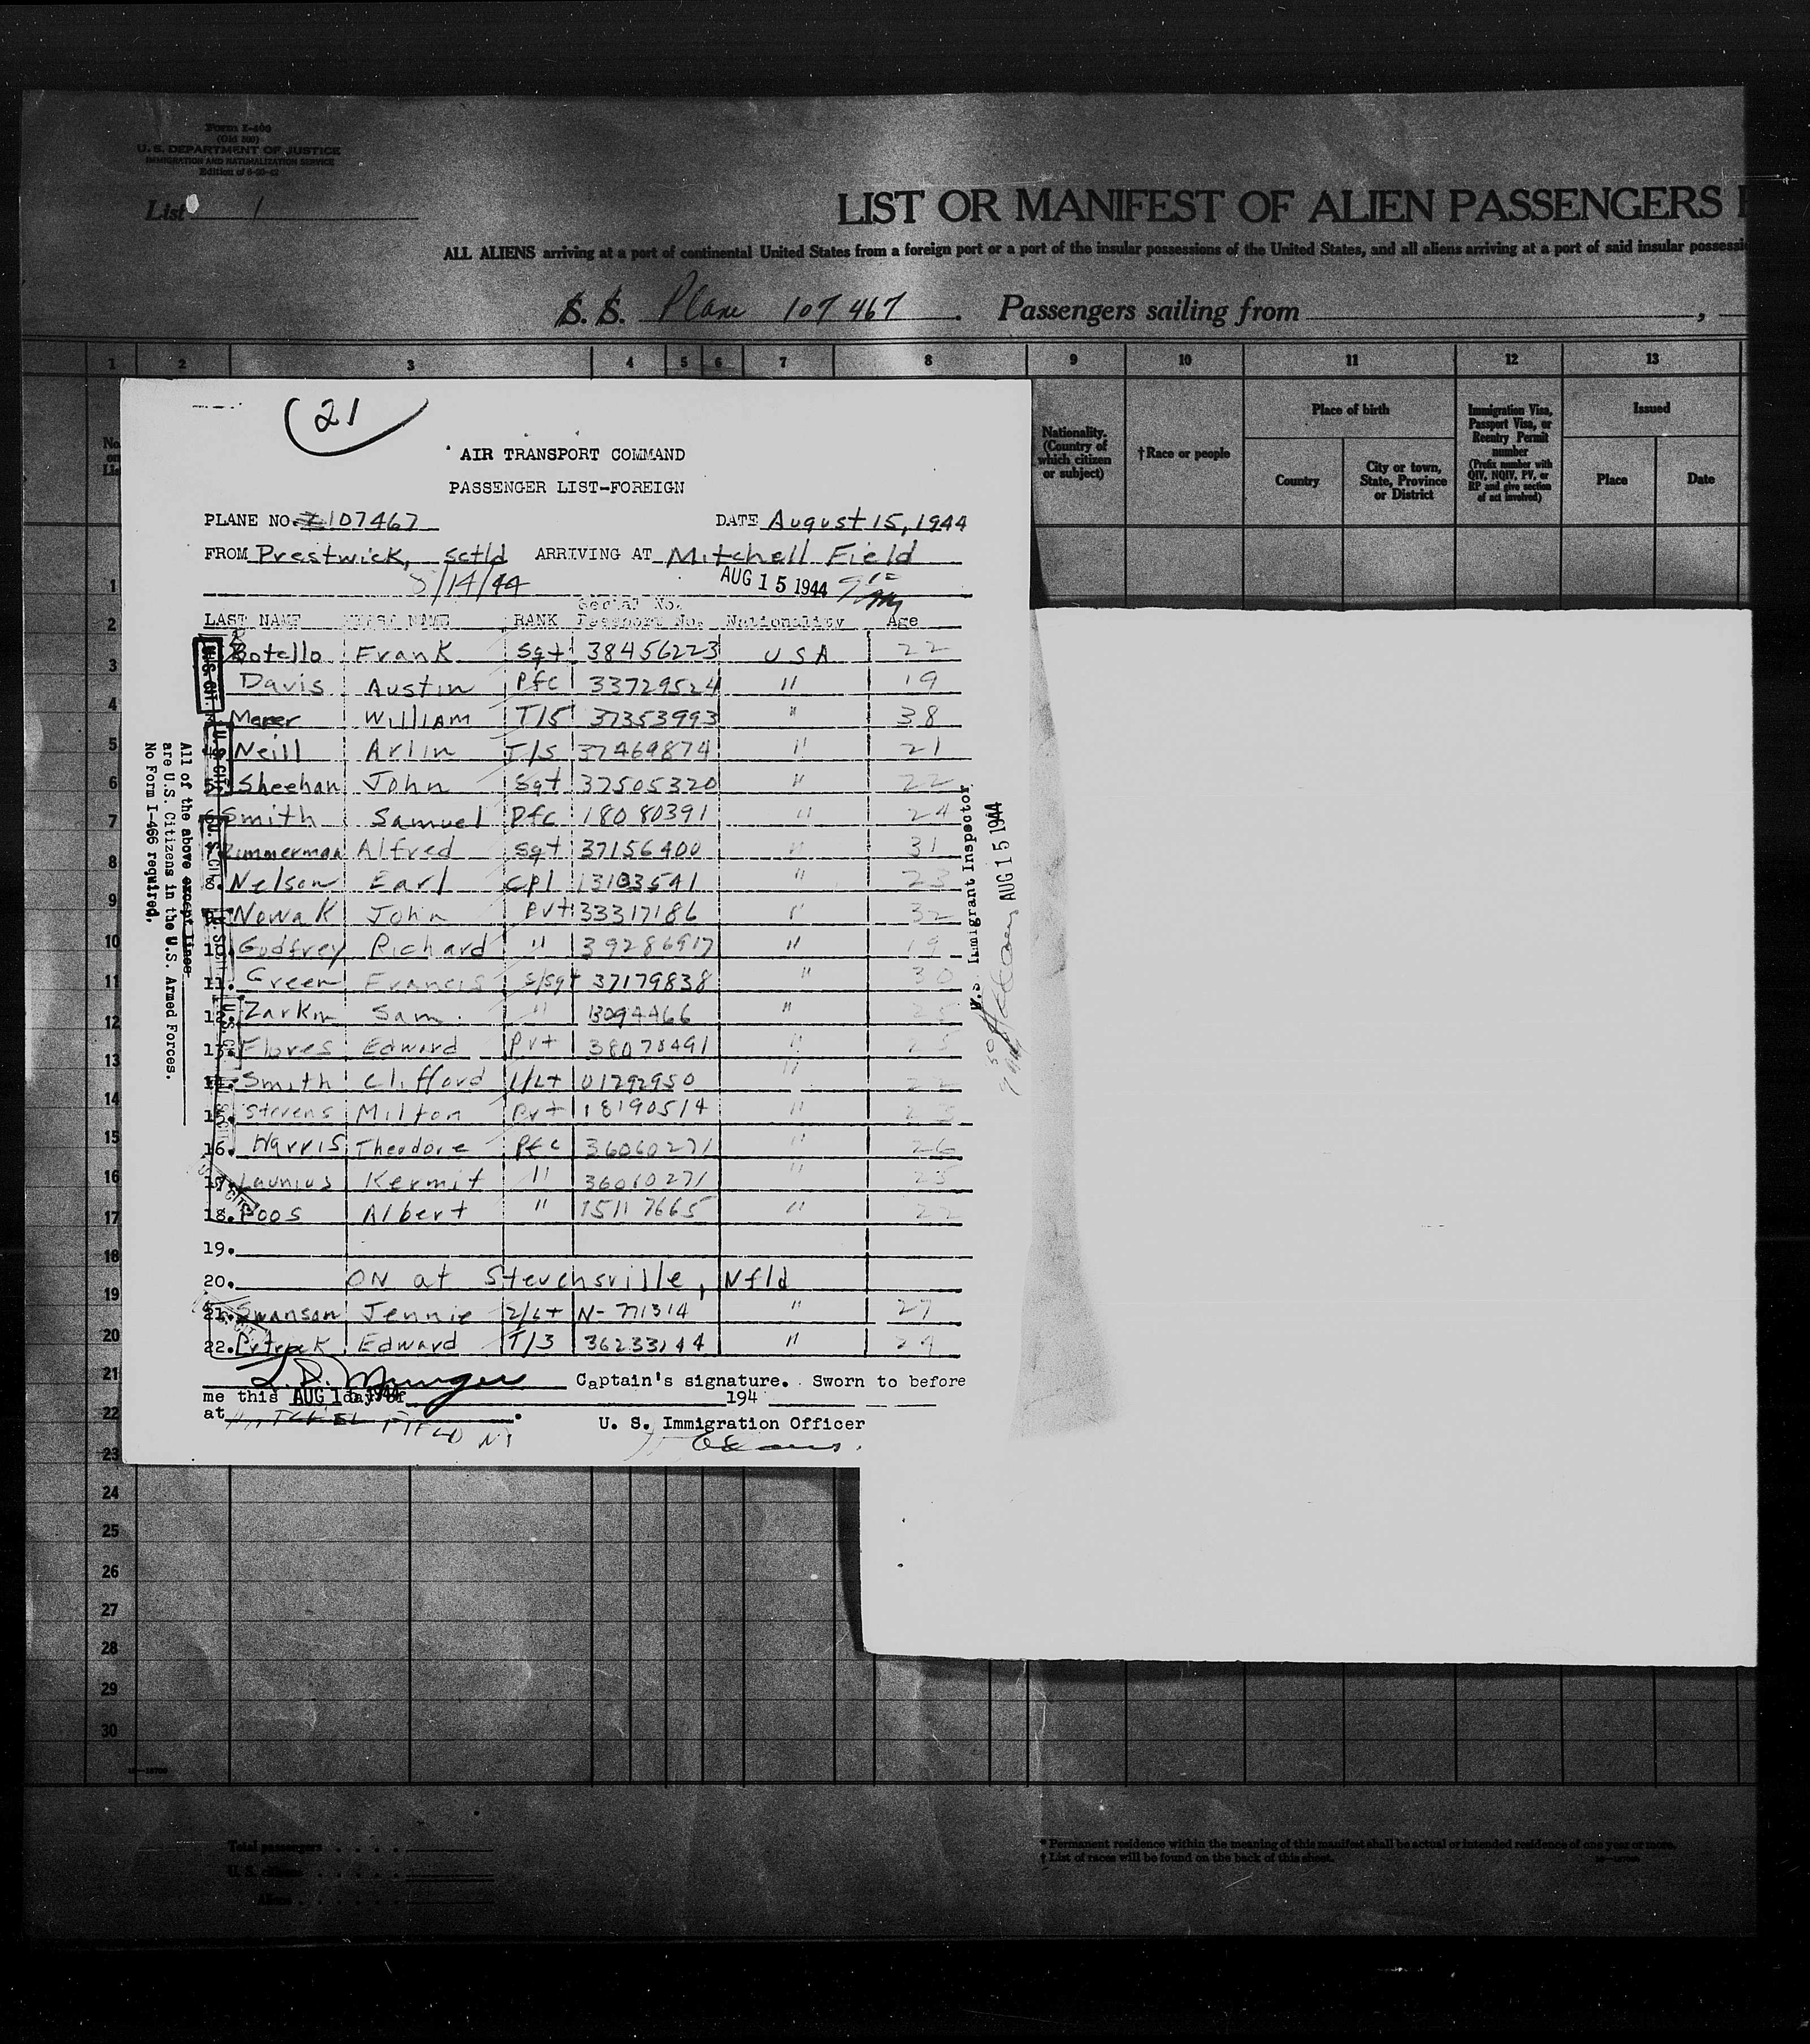 Form I-466
(Old 500)
U. S. DEPARTMENT OF JUSTICE
IMMIGRATION AND NATURALIZATION SERVICE
List 1
LIST OR MANIFEST OF ALIEN PASSENGERS
ALL ALIENS arriving at a port of continental United States from a foreign port or a port of the insular possessions of the United States, and all aliens arriving at a port of said insular possessi
S. S. Plane 107467 . Passengers sailing from ,
1 2 3 4 5 6 7 8 9 10 11 12 13
Nationality. (Country of which citizen or subject)
†Race or people
Place of birth
Country
City or town, State, Province or District
Immigration Visa, Passport Visa, or Reentry Permit number
(Prefix number with QIV, NQIV, PV, or RP and give section of act involved)
Issued
Place
Date
21
AIR TRANSPORT COMMAND
PASSENGER LIST-FOREIGN
PLANE NO. 107467 DATE August 15, 1944
FROM Prestwick, Sctld ARRIVING AT Mitchell Field
AUG 15 1944
LAST NAME FIRST NAME RANK Serial No. Passport No. Nationality Age
Botello Frank Sgt 38456223 USA 22
Davis Austin Pfc 33729524 " 19
William T/5 37353993 " 38
Neill Arlin T/5 37469874 " 21
Sheehan John Sgt 37505320 " 22
Smith Samuel Pfc 18080391 " 24
Zimmerman Alfred Sgt 37156400 " 31
8. Nelson Earl Cpl 13103541 " 23
Nowak John Pvt 33317186 " 32
10. Godfrey Richard " 39286917 " 19
11. Green Francis S/Sgt 37179838 " 30
12. Zarkin Sam " "
13. Flores Edward Pvt 38078491 "
14. Smith Clifford 1/Lt 01292950 "
15. Stevens Milton Pvt 18190514 "
16. Harris Theodore Pfc 36060271 " 26
17. Launius Kermit " 36060271 "
18. Poos Albert " 15117665 " 22
19.
20. ON at Stevensville, Nfld
21. Swanson Jennie 2/Lt N-771314 " 27
22. Edward T/3 36233144 "
L. D. Munger Captain's signature. Sworn to before
me this AUG 15 1944 day of 194
at MITCHEL FIELD NY
U. S. Immigration Officer
All of the above except lines
are U.S. Citizens in the U.S. Armed Forces.
No Form I-466 required.
U.S. Immigrant Inspector
AUG 15 1944
1
2
3
4
5
6
7
8
9
10
11
12
13
14
15
16
17
18
19
20
21
22
23
24
25
26
27
28
29
30
Total passengers
U. S. citizens
Aliens
* Permanent residence within the meaning of this manifest shall be actual or intended residence of one year or more.
† List of races will be found on the back of this sheet.